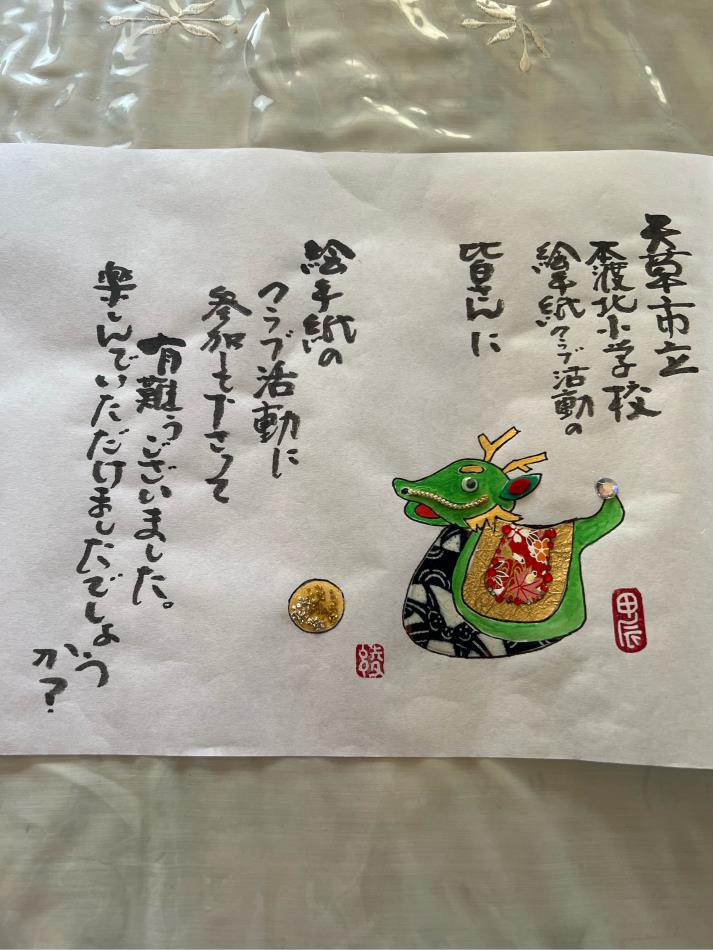 天草市立
本渡北小学校
絵手紙クラブ活動の
皆さんに
絵手紙の
クラブ活動に
参加して下さって
有難うございました。
楽しんでいただけましたでしょう
か？
甲辰
綾